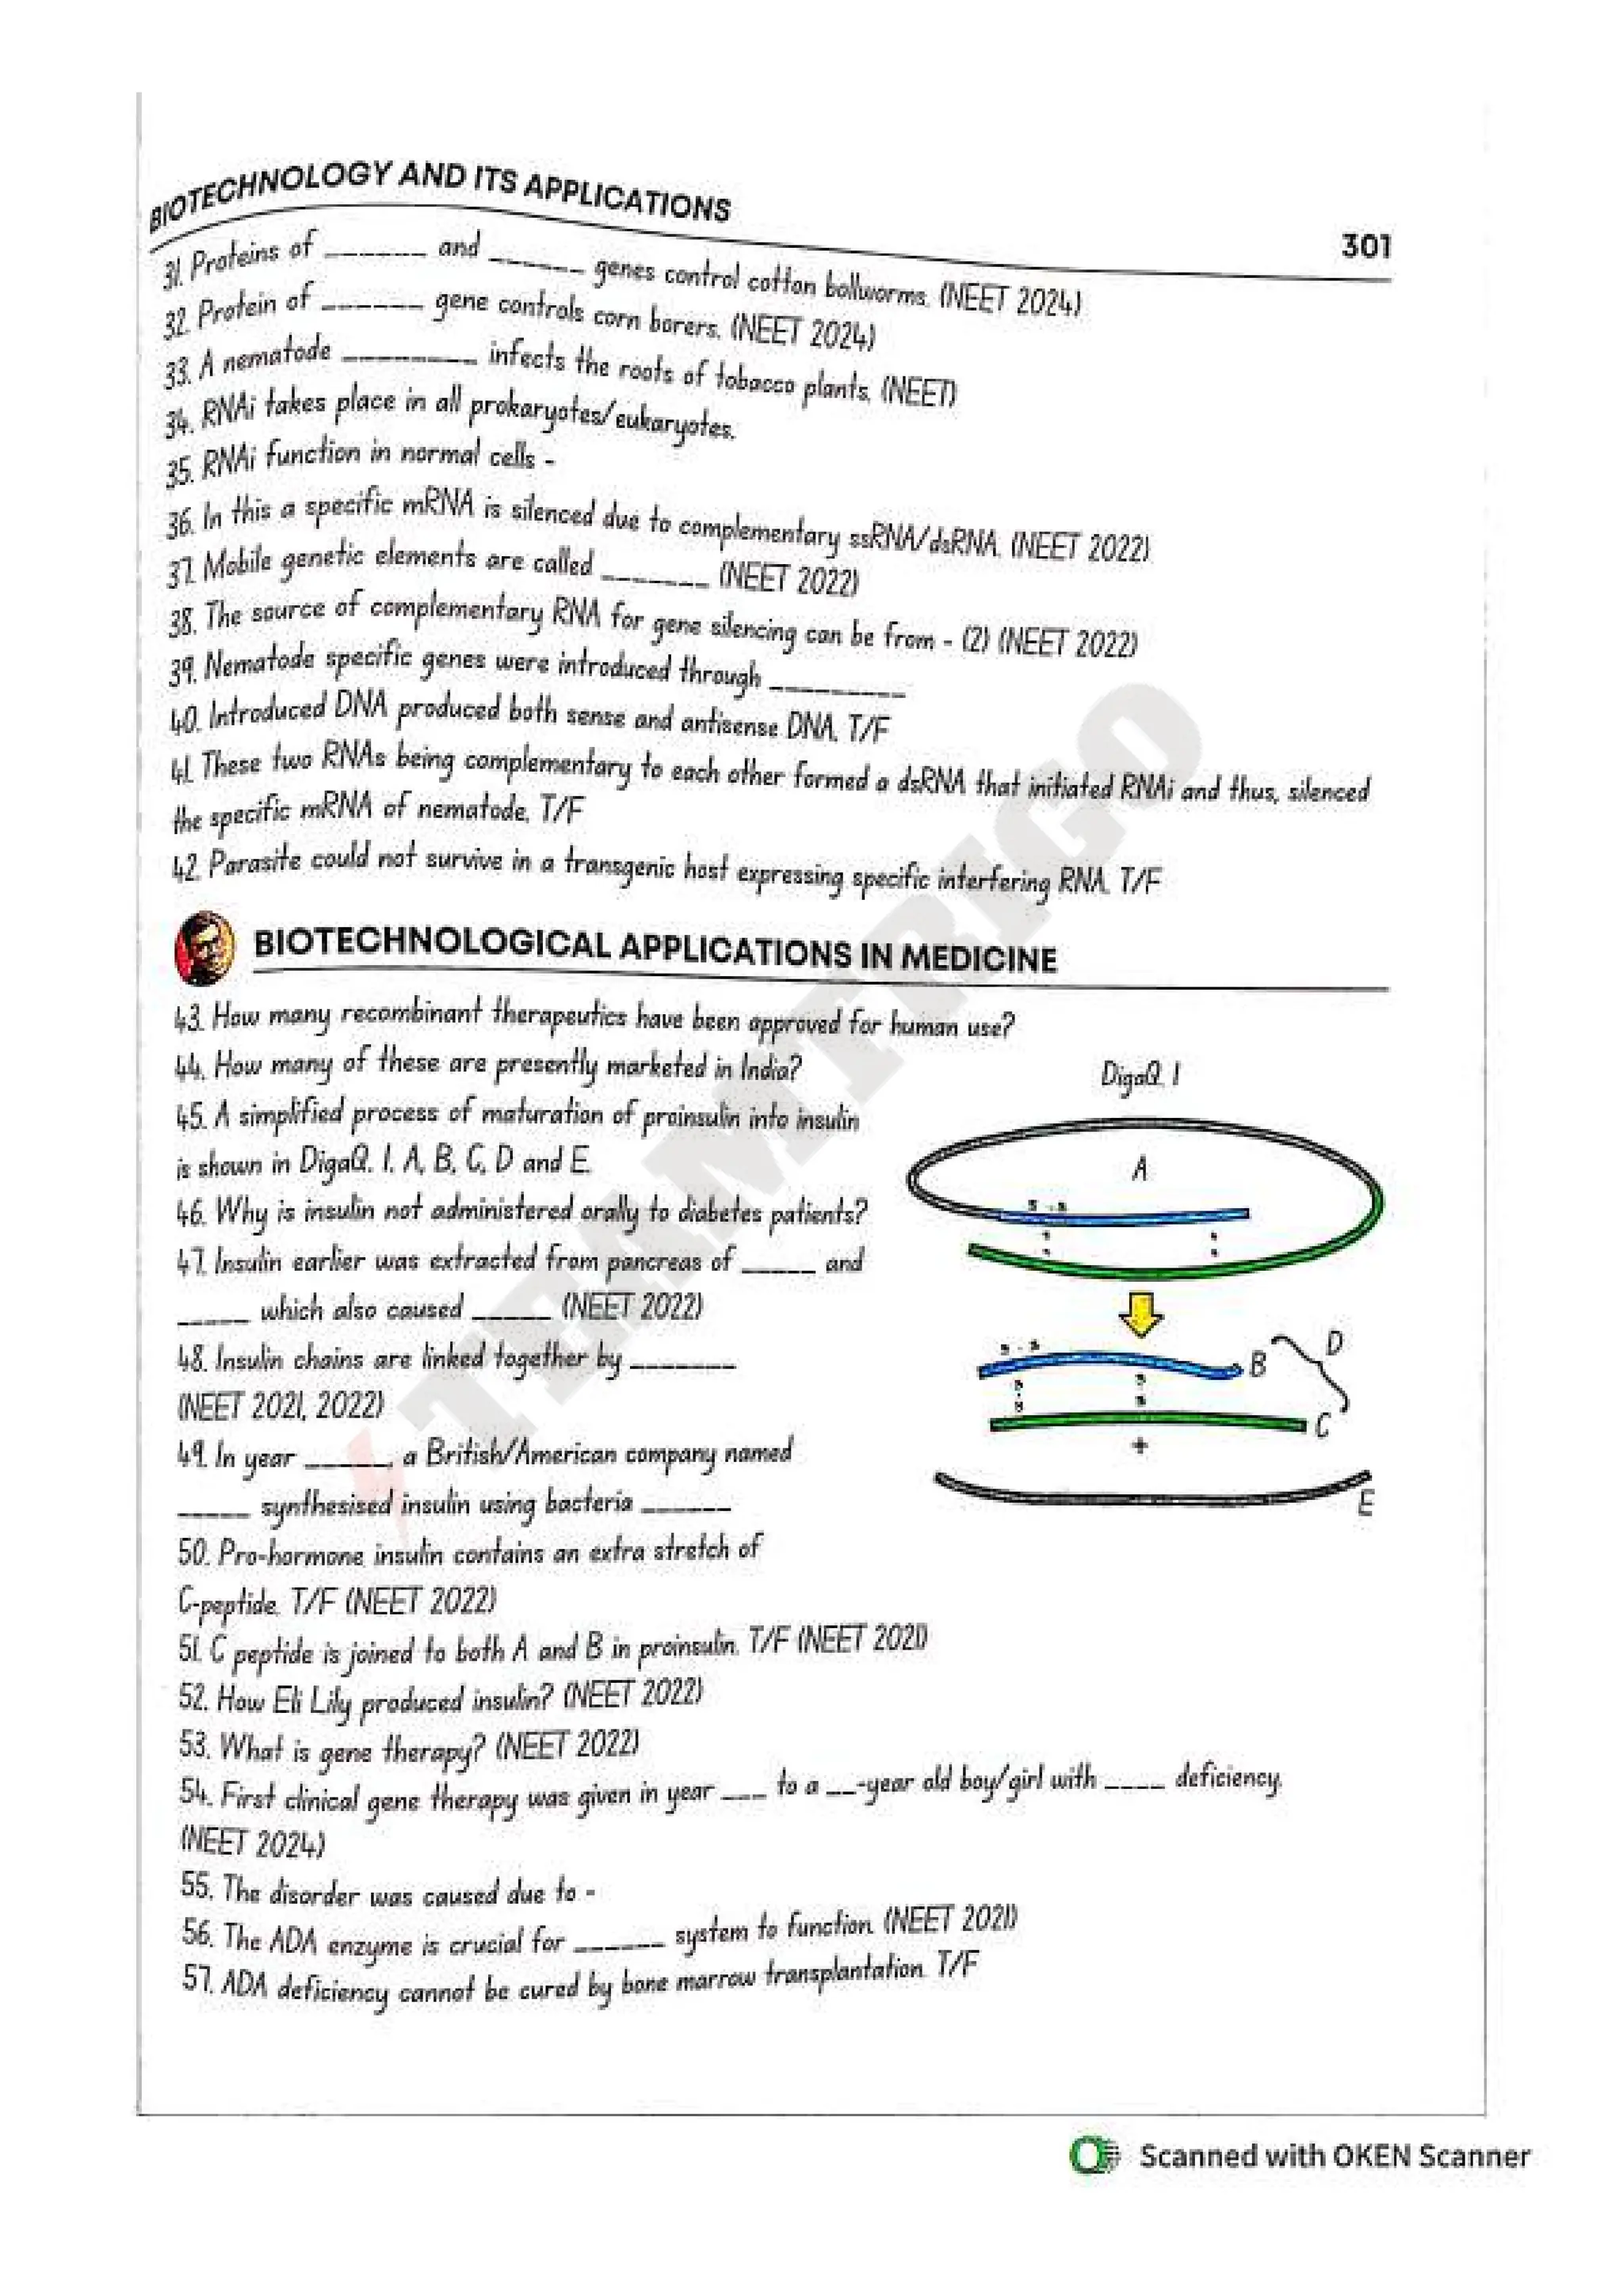 BIOTECHNOLOGY AND ITS APPLICATIONS
301
31. Proteins of ______ and ______ genes control cotton bollworms. (NEET 2024)
32. Protein of ______ gene controls corn borers. (NEET 2024)
33. A nematode ________ infects the roots of tobacco plants. (NEET)
34. RNAi takes place in all prokaryotes/eukaryotes.
35. RNAi function in normal cells -
36. In this a specific mRNA is silenced due to complementary ssRNA/dsRNA. (NEET 2022)
37. Mobile genetic elements are called _______ (NEET 2022)
38. The source of complementary RNA for gene silencing can be from - (2) (NEET 2022)
39. Nematode specific genes were introduced through _________
40. Introduced DNA produced both sense and antisense DNA. T/F
41. These two RNAs being complementary to each other formed a dsRNA that initiated RNAi and thus, silenced
the specific mRNA of nematode. T/F
42. Parasite could not survive in a transgenic host expressing specific interfering RNA. T/F
BIOTECHNOLOGICAL APPLICATIONS IN MEDICINE
43. How many recombinant therapeutics have been approved for human use?
44. How many of these are presently marketed in India?
45. A simplified process of maturation of proinsulin into insulin
is shown in DigaQ. 1. A, B, C, D and E.
46. Why is insulin not administered orally to diabetes patients?
47. Insulin earlier was extracted from pancreas of _____ and
_____ which also caused _____ (NEET 2022)
48. Insulin chains are linked together by _______
(NEET 2021, 2022)
49. In year _____, a British/American company named
_____ synthesised insulin using bacteria ______
50. Pro-hormone insulin contains an extra stretch of
C-peptide. T/F (NEET 2022)
DigaQ. 1
A
s - s
s
s
s
s
s - s
B
D
s
s
s
s
C
+
E
51. C peptide is joined to both A and B in proinsulin. T/F (NEET 2021)
52. How Eli Lily produced insulin? (NEET 2022)
53. What is gene therapy? (NEET 2022)
54. First clinical gene therapy was given in year ___ to a __-year old boy/girl with ____ deficiency.
(NEET 2024)
55. The disorder was caused due to -
56. The ADA enzyme is crucial for ______ system to function. (NEET 2021)
57. ADA deficiency cannot be cured by bone marrow transplantation. T/F
TEAMTRIGO
Scanned with OKEN Scanner